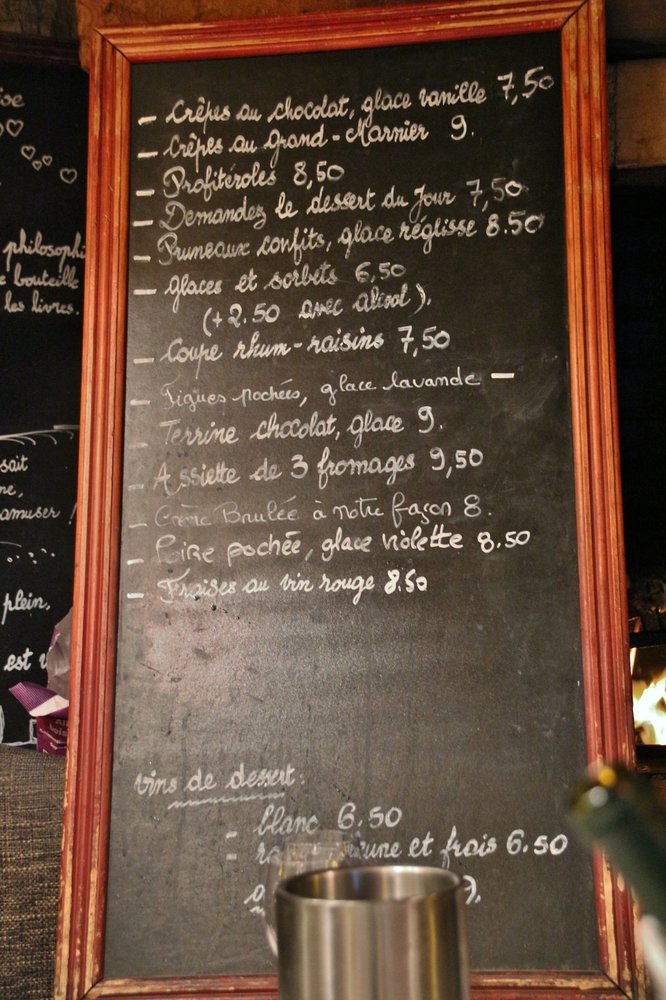 - Crêpes au chocolat, glace vanille 7,50
- Crêpes au Grand-Marnier 9.
- Profitéroles 8,50
- Demandez le dessert du Jour 7,50
- Pruneaux confits, glace réglisse 8.50
- glaces et sorbets 6.50
(+2.50 avec alcool).
- Coupe rhum-raisins 7,50
- Figues pochées, glace lavande -
- Terrine chocolat, glace 9.
- Assiette de 3 fromages 9,50
- Crème Brulée à notre façon 8.
- Poire pochée, glace violette 8.50
- Fraises au vin rouge 8.50
vins de dessert:
- blanc 6.50
- et frais 6.50
philosophi
bouteille
les livres.
sait
amuser !
plein.
est